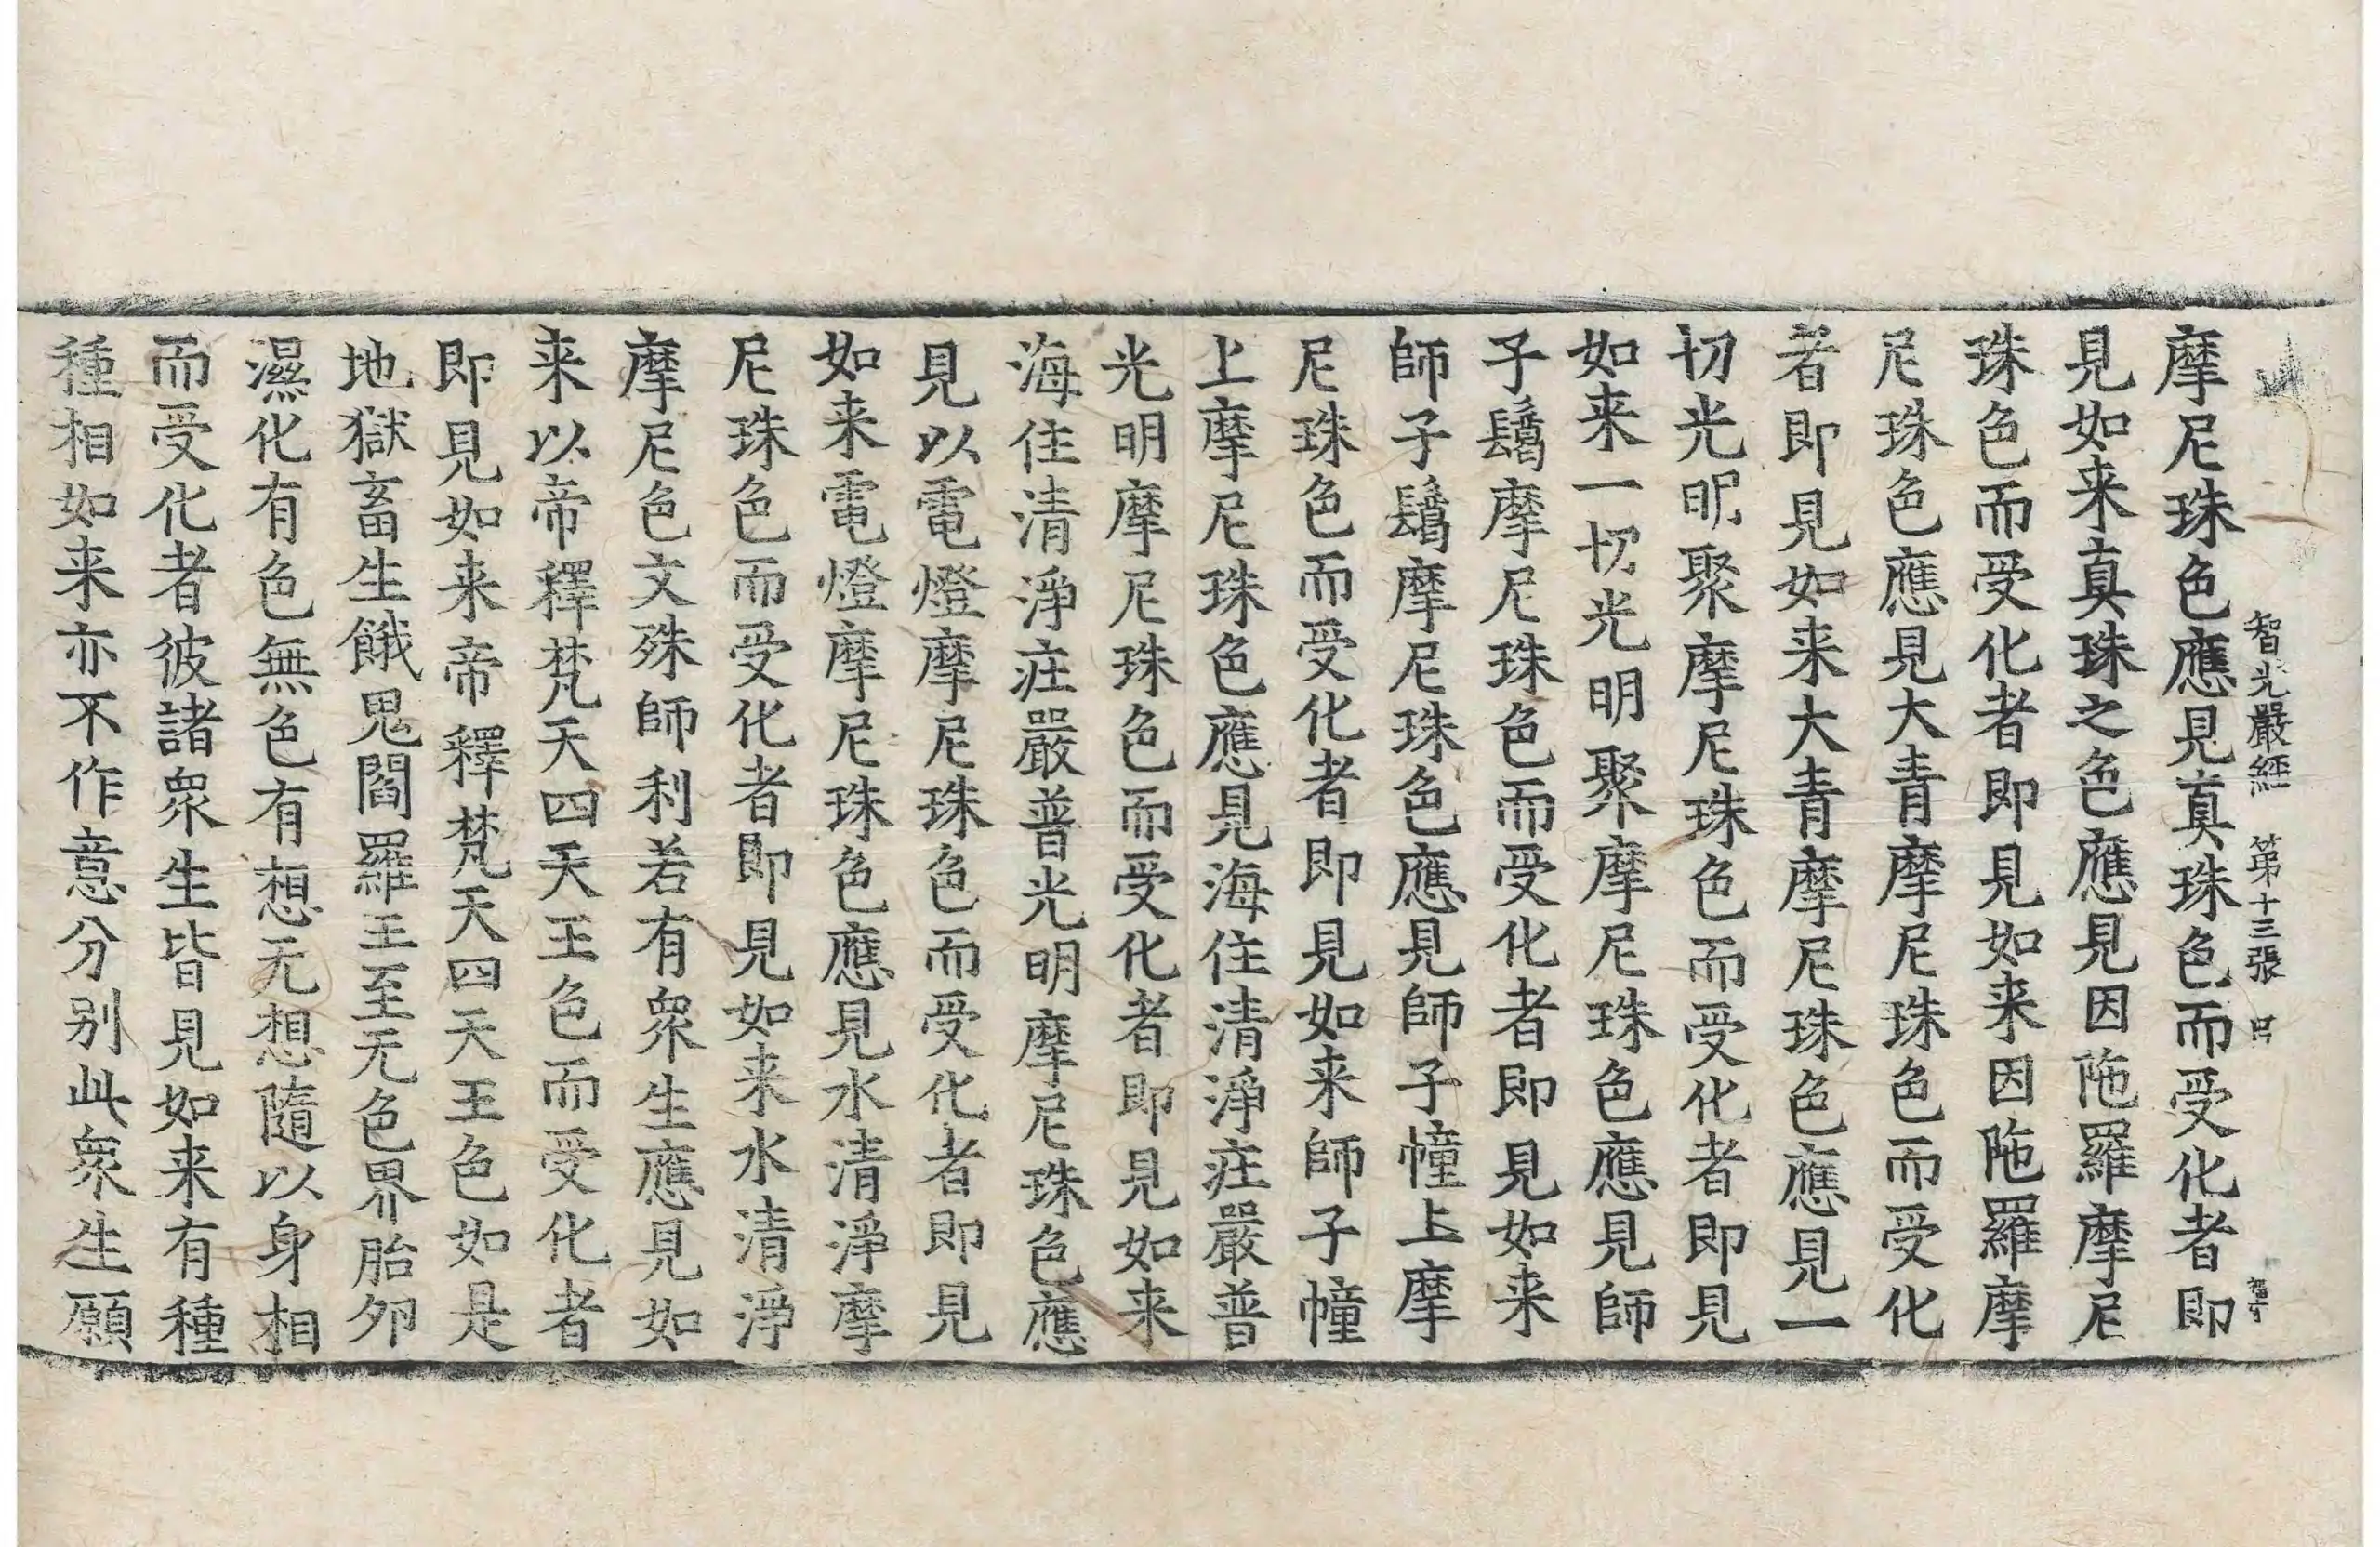 智光嚴經 第十三張 囘
摩尼珠色應見真珠色而受化者即
見如来真珠之色應見因陁羅摩尼
珠色而受化者即見如来因陁羅摩
尼珠色應見大青摩尼珠色而受化
者即見如来大青摩尼珠色應見一
切光明聚摩尼珠色而受化者即見
如来一切光明聚摩尼珠色應見師
子鬚摩尼珠色而受化者即見如来
師子鬚摩尼珠色應見師子幢上摩
尼珠色而受化者即見如来師子幢
上摩尼珠色應見海住清淨庄嚴普
光明摩尼珠色而受化者即見如来
海住清淨庄嚴普光明摩尼珠色應
見以電燈摩尼珠色而受化者即見
如来電燈摩尼珠色應見水清淨摩
尼珠色而受化者即見如来水清淨
摩尼色文殊師利若有衆生應見如
来以帝釋梵天四天王色而受化者
即見如来帝釋梵天四天王色如是
地獄畜生餓鬼閻羅王至无色界胎夘
濕化有色無色有想无想隨以身相
而受化者彼諸衆生皆見如来有種
種相如来亦不作意分别此衆生願